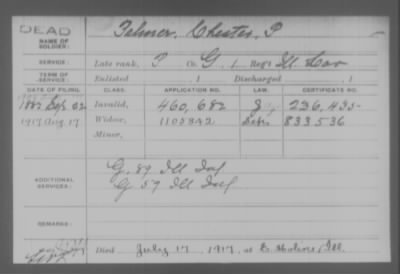 DEAD
NAME OF SOLDIER: Chester, P
SERVICE: Late rank, P Co. G, 1 Reg't Ill. Cav
TERM OF SERVICE: Enlisted , 1 Discharged , 1
DATE OF FILING. CLASS. APPLICATION NO. LAW. CERTIFICATE NO.
1882 Sep 02 Invalid, 460,682 236,435
1917 Aug. 17 Widow, 1105342 833536
Minor,
ADDITIONAL SERVICES: G. 89 Ill Inf
G 59 Ill Inf
REMARKS:
Died July 17, 1917, at E. Moline, Ill.